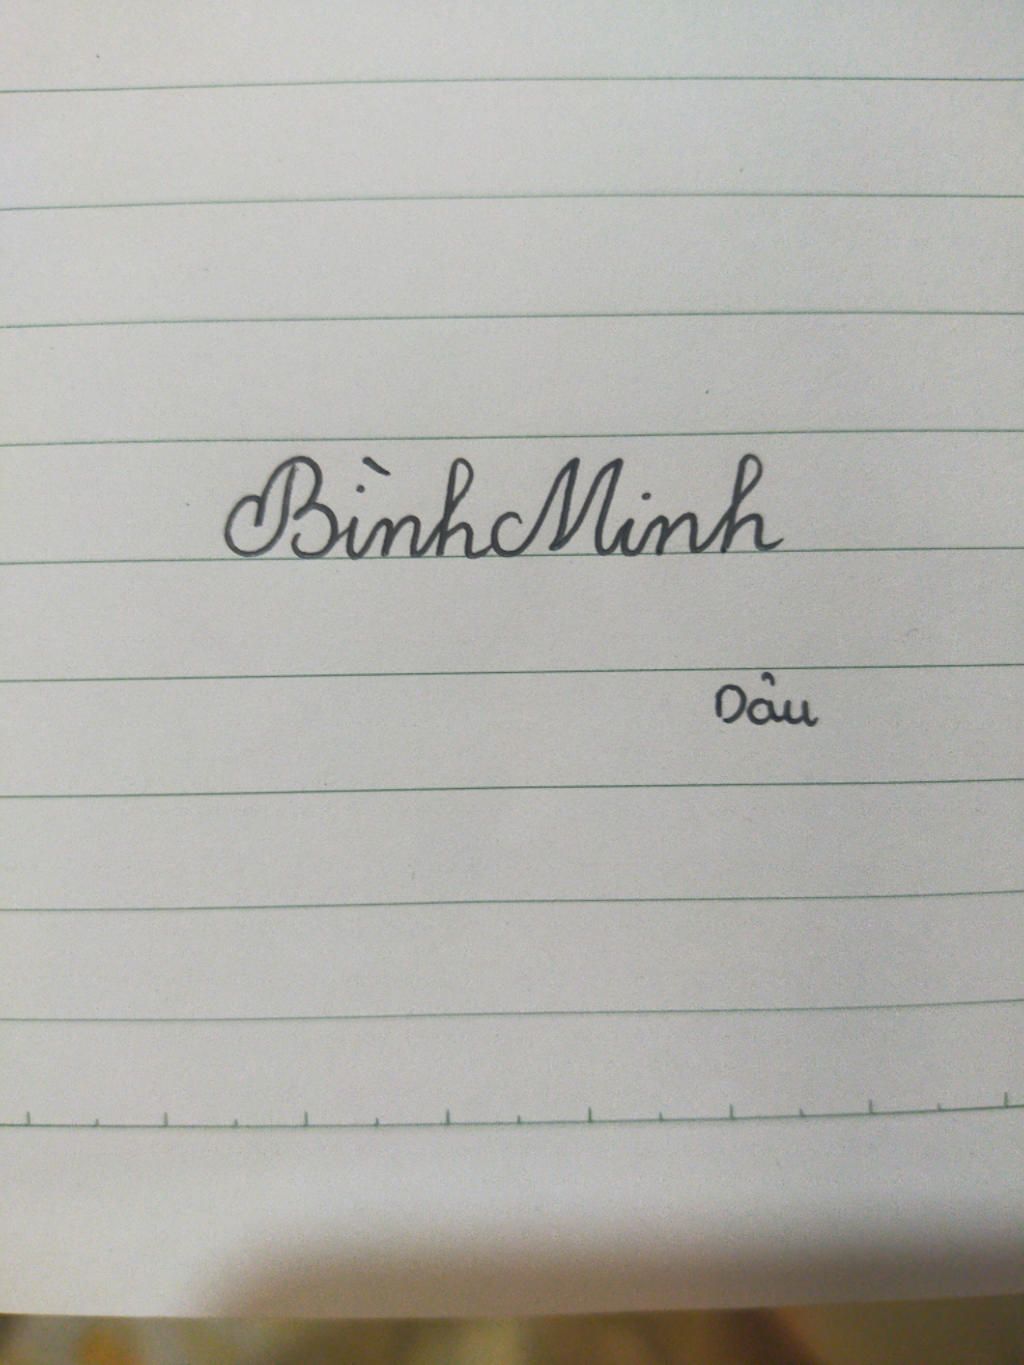 Bình Minh
Dẩu